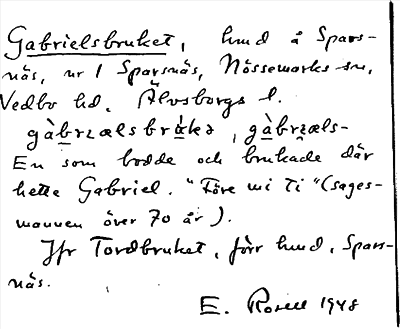 Gabrielsbruket, hmd å Spars-
näs, nr 1 Sparsnäs, Nössemarks sn,
Vedbo hd. Älvsborgs l.
gàbrɩælsbrɑ̀kə, gàbrɩæls-
En som bodde och brukade där
hette Gabriel. "Före mi ti" (sages-
mannen över 70 år).
Jfr Tordbruket, förr hmd, Spars-
näs.
E. Rosell 1948